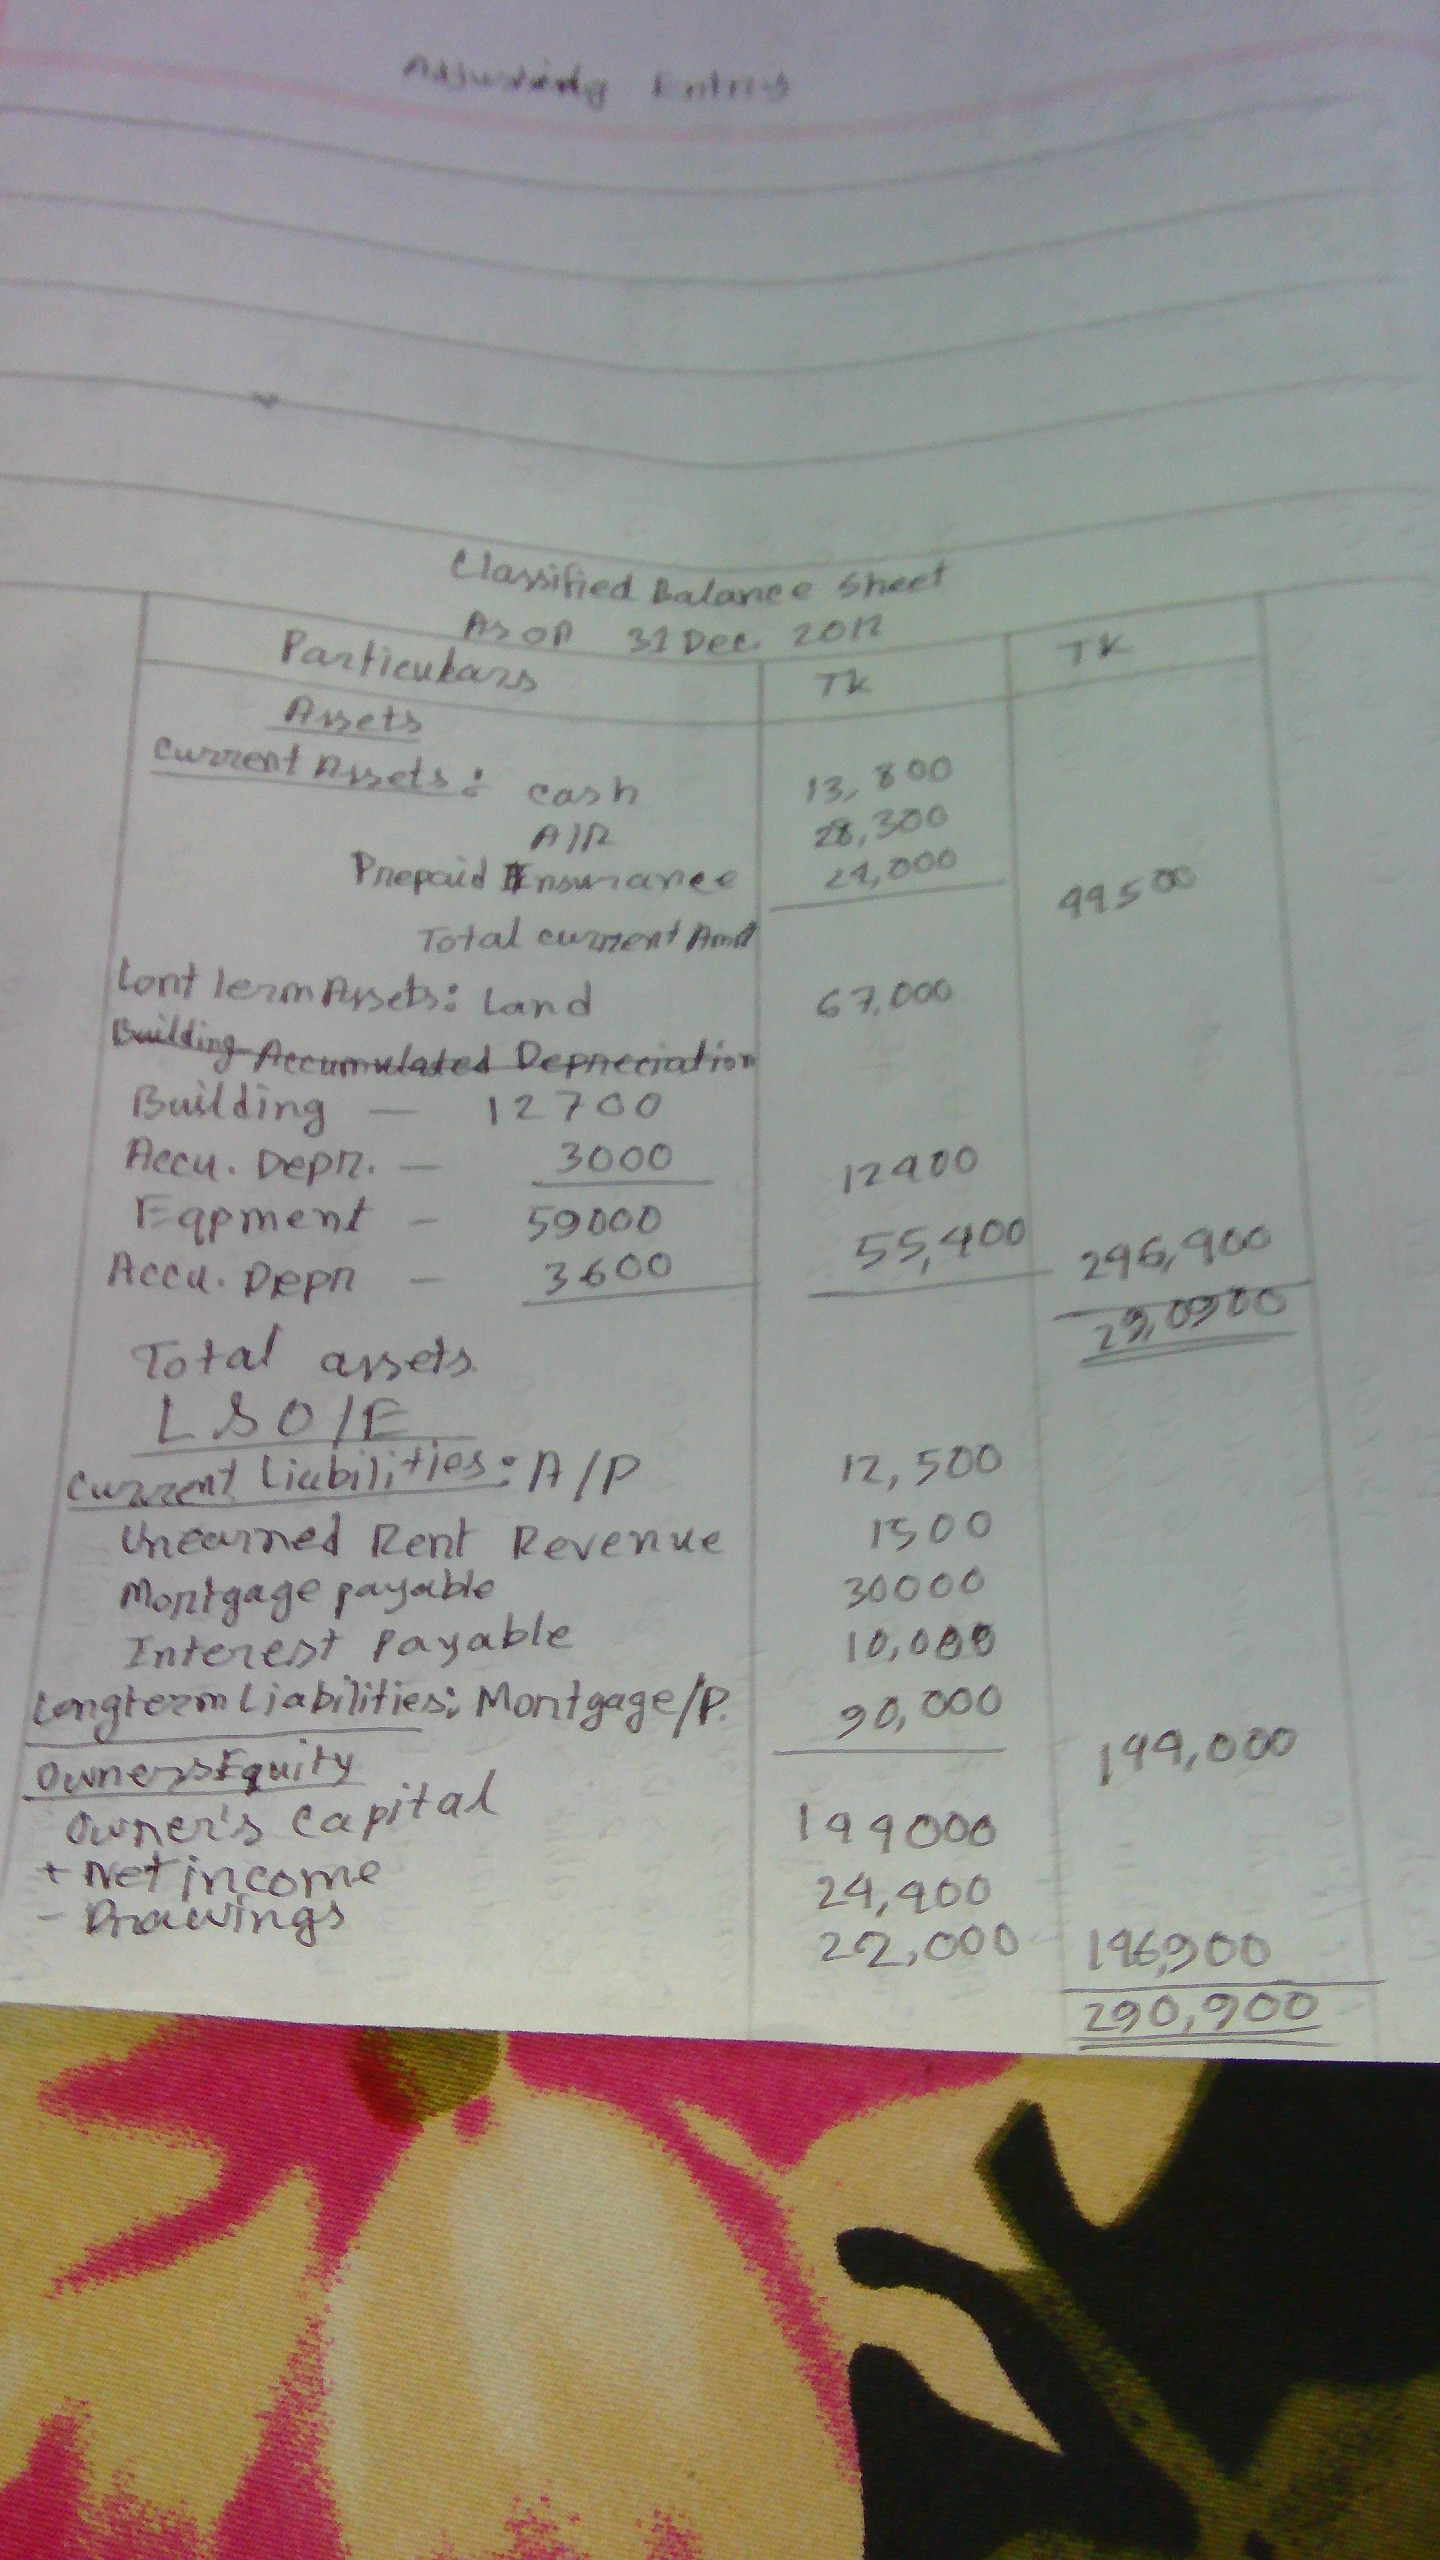 Adjusting Entries
Classified Balance Sheet
As on 31 Dec. 2012
Particulars TK TK
Assets
Current Assets: cash 13,800
A/R 28,300
Prepaid Insurance
Total current 44500
Lont Term Assets: Land 67,000
Building Accumulated Depreciation
Building — 12700
Accu. Depr. — 3000 12400
Eqpment - 59000
Accu. Depr - 3600 55,400 246,400
Total assets 29,0900
L & O/E
Current Liabilities: A/P 12,500
Unearned Rent Revenue 1500
Mortgage payable 30000
Interest Payable 10,000
Longterm Liabilities: Mortgage/P. 90,000 144,000
Owners Equity
Owner's Capital 144000
+ Net income 24,900
- Drawings 22,000 146,900
290,900